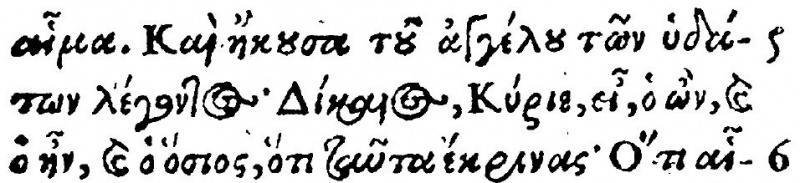 αἷμα. Καὶ ἤκουσα τοῦ ἀγγέλου τῶν ὑδά- 5
των λέγοντος· Δίκαιος, Κύριε, εἶ, ὁ ὢν, καὶ
ὁ ἦν, καὶ ὁ ὅσιος, ὅτι ταῦτα ἔκρινας· Ὅτι αἷ- 6